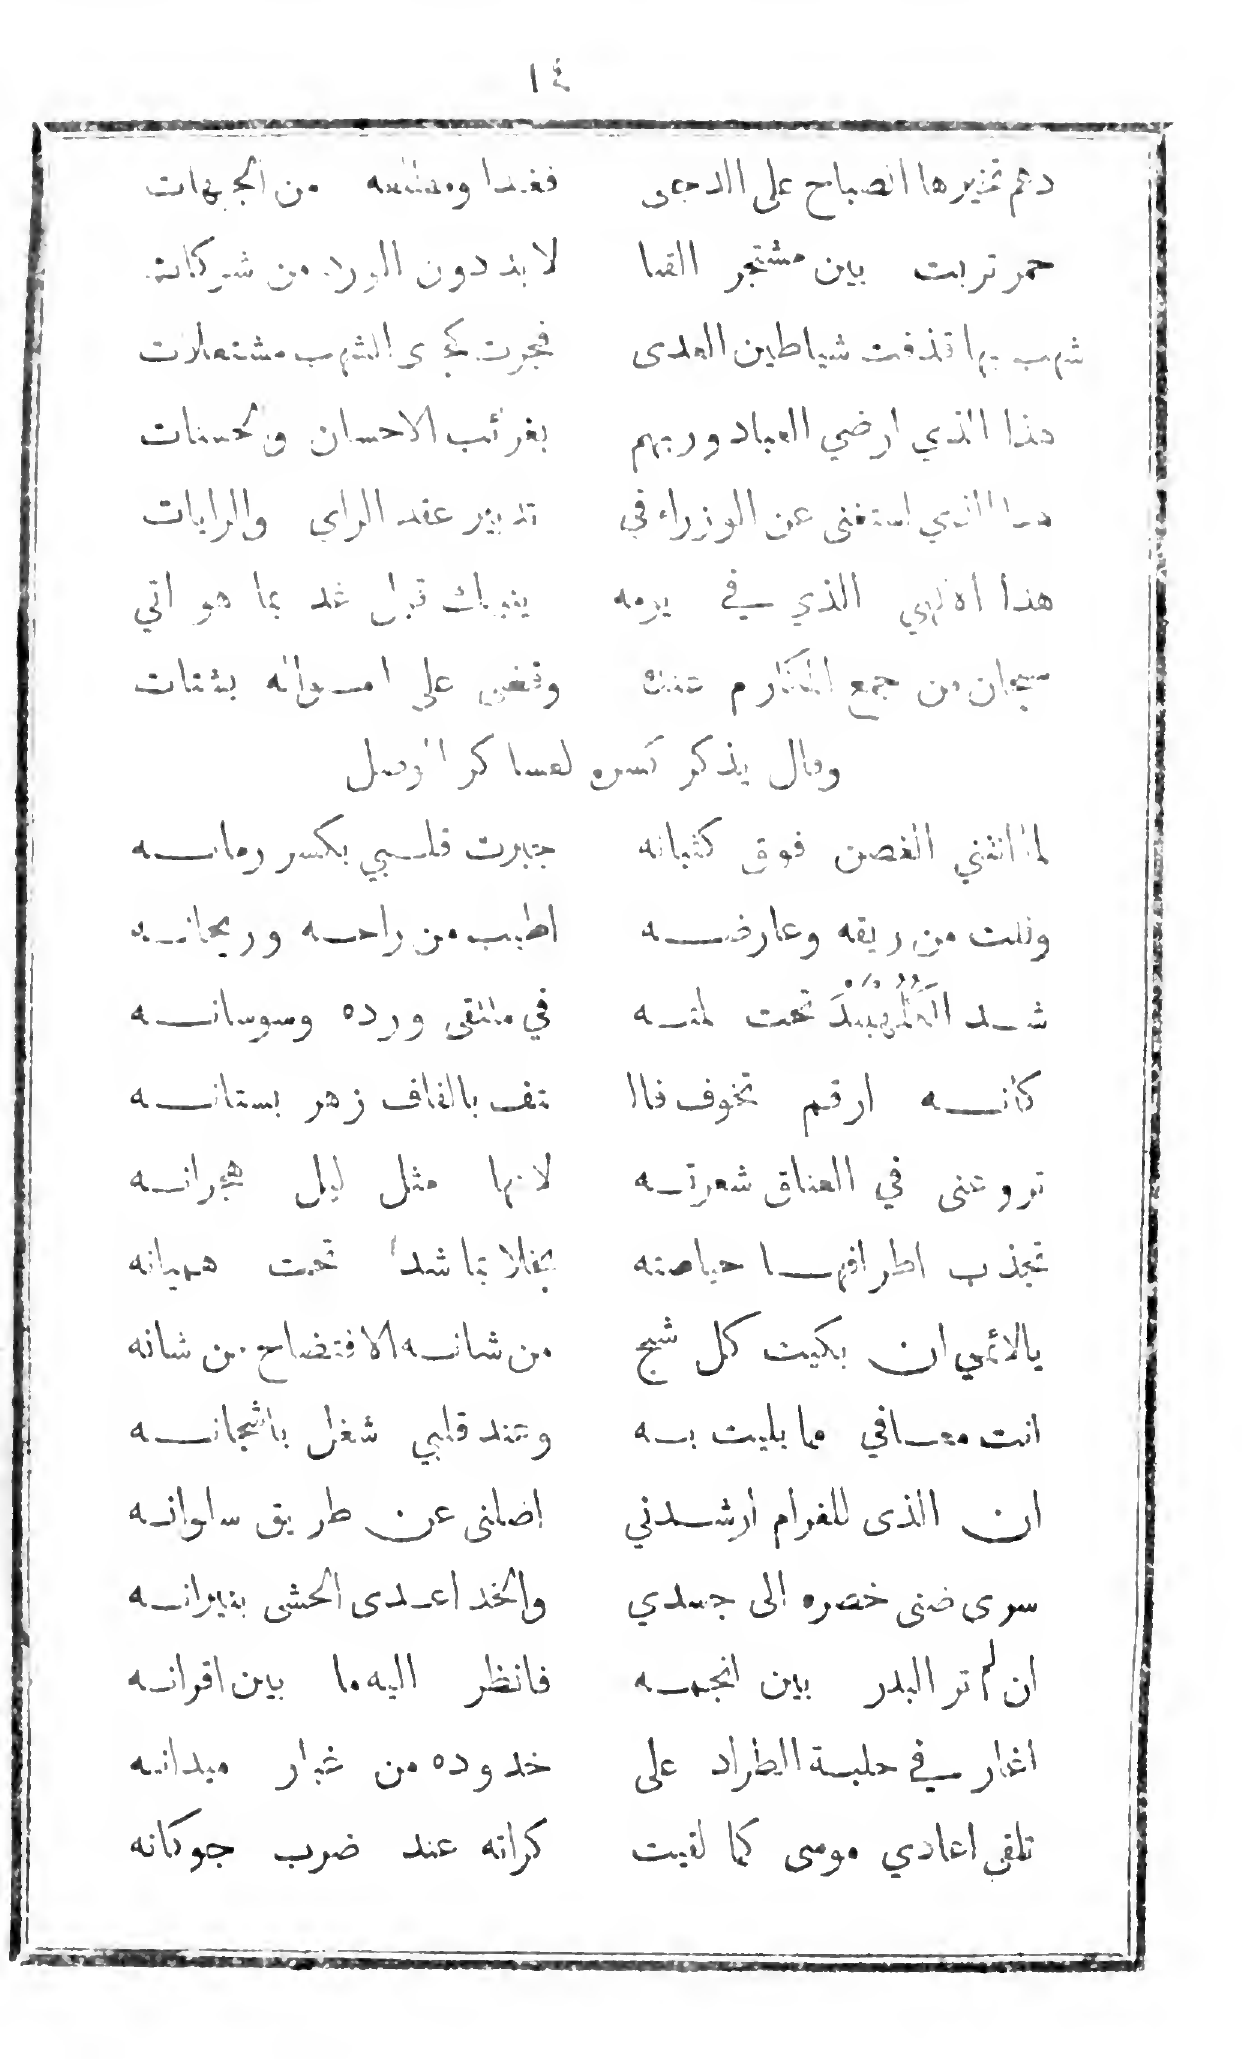 ١٤
دهم تخيرها الصباح على الدجى فغدا ومطلعه من الجبهات
حمر تربت بين مشتجر القنا لا بد دون الورد من شوكات
شهب بها قذفت شياطين العدى فجرت كجرى الشهب مشتعلات
هذا الذي ارضي العباد وربهم بغرائب الاحسان والحسنات
هذا الذي استغنى عن الوزراء في تدبير عقد الراي والرايات
هذا الذي في يومه ينبيك قبل غد بما هو اتي
سبحان من جمع المكارم عنده وقضى على امواله بشتات
وقال يذكر كسره لعساكر الموصل
لما انثني الغصن فوق كثبانه جبرت قلبي بكسر رمانه
ونلت من ريقه وعارضه اطيب من راحه وريحانه
شد البند تحت لمته في ملتقى ورده وسوسانه
كانه ارقم تخوف فالتف بالفاف زهر بستانه
تروعنى في العناق شعرته لانها مثل ليل هجرانه
تجذب اطرافها حياصته بخلا بما شد تحت هميانه
يالائمي ان بكيت كل شج من شانه الافتضاح من شانه
انت معافي مما بليت به وعند قلبي شغل باشجانه
ان الذى للغرام أرشدني اضلنى عن طريق سلوانه
سرى ضنى خصره الى جسدي والخد اعدى الحشى بنيرانه
ان لم تر البدر بين انجمه فانظر اليه ما بين اقرانه
اغار في حلبة الطراد على خدوده من غبار ميدانه
تلقى اعادي موسى كما لقيت كراته عند ضرب جوكانه